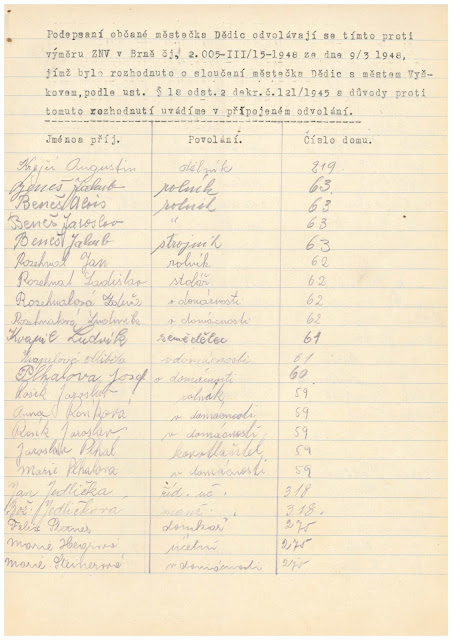 Podepsaní občané městečka Dědic odvolávají se tímto proti
výměru ZNV v Brně čj. 2.005-III/15-1948 ze dne 9/3 1948,
jímž bylo rozhodnuto o sloučení městečka Dědic s městem Vyš-
kovem,podle ust. § 18 odst.2 dekr.č.121/1945 s důvody proti
tomuto rozhodnutí uvádíme v připojeném odvolání.
Jména a příj. Povolání. Číslo domu.
Krejčí Augustin dělník 219.
Beneš Jakub rolník 63.
Beneš Alois rolník 63.
Beneš Jaroslav " 63
Beneš Jakub strojník 63
Rozehnal Jan rolník 62
Rozehnal Ladislav stolář 62
Rozehnalová v domácnosti 62
Rozehnalová Ludmila v domácnosti 62
Kvapil Ludvík zemědělec 61
Kvapilová v domácnosti 61
Plhalova Josef v domácnosti 60
Kosík Jaroslav rolník 59
Anna Kosíkova v domácnosti 59
Kosík Jaroslav v domácnosti 59
Jaroslav Plhal 59
Marie Plhalova v domácnosti 59
Jan Jedlička říd. uč. 318
Bož. Jedličkova 318.
domkař 275
Marie účetní 275
Marie v domácnosti 275